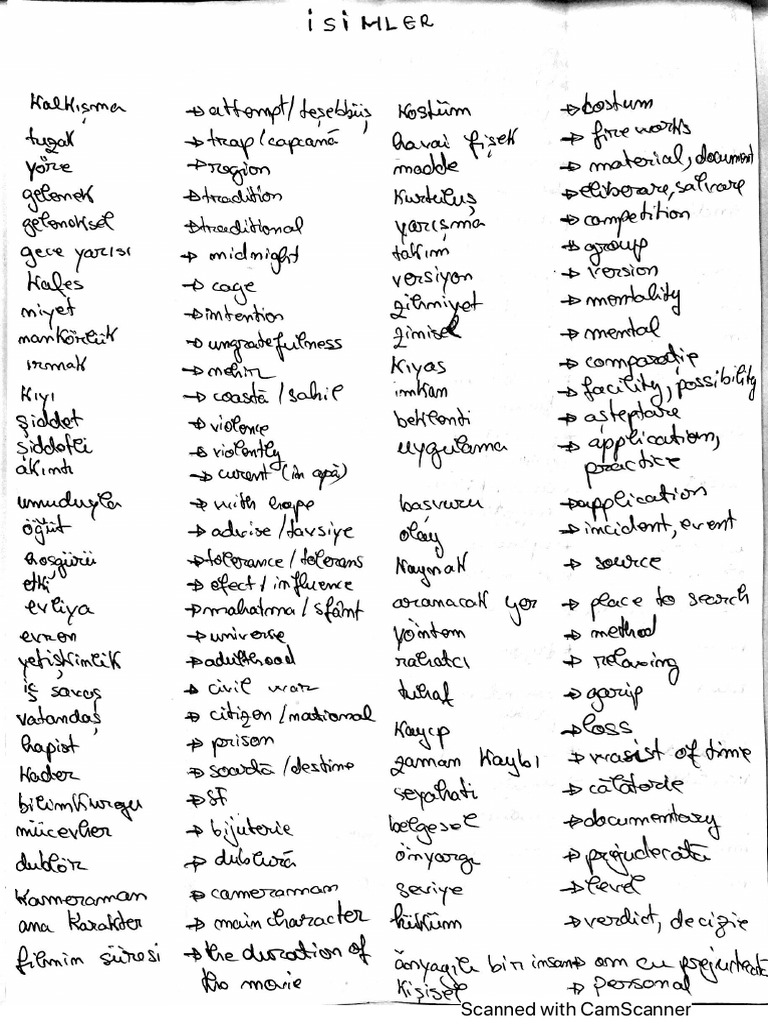 İSİMLER
kalkışma → attempt/teşebbüs
tuzak → trap/capcană
yöre → region
gelenek → tradition
geleneksel → traditional
gece yarısı → midnight
kafes → cage
niyet → intention
nankörlük → ungratefulness
ırmak → nehir
kıyı → coastă/sahil
şiddet → violence
şiddetli → violently
akıntı → curent (în apă)
umuduyla → with hope
öğüt → advise/tavsiye
hoşgürü → tolerance/tolerans
etki → efect/influence
evliya → mahatma/sfânt
evren → universe
yetişkinlik → adulthood
iş savaş → civil war
vatandaş → citizen/national
hapist → prison
kader → soartă/destine
bilimkurgu → SF
mücevher → bijuterie
dublör → dublură
kameraman → cameraman
ana karakter → main character
filmin süresi → the duration of
the movie
kostüm → costum
havai fişek → fireworks
madde → material, document
kurtuluş → eliberare, salvare
yarışma → competition
takım → group
versiyon → version
zihniyet → mentality
zinisel → mental
kıyas → comparație
imkan → facility, possibility
beklenti → așteptare
uygulama → application,
practice
basvuru → application
olay → incident, event
kaynak → source
aranacak yer → place to search
yöntem → method
rahatcı → relaxing
tuhaf → garip
kayıp → loss
zaman kaybı → wasist of time
seyahati → călătorie
belgesel → documentary
önyargı → prejudecată
seviye → level
hüküm → verdict, decizie
önyagılı bir insan → om cu prejudecăți
kişisel → personal
Scanned with CamScanner